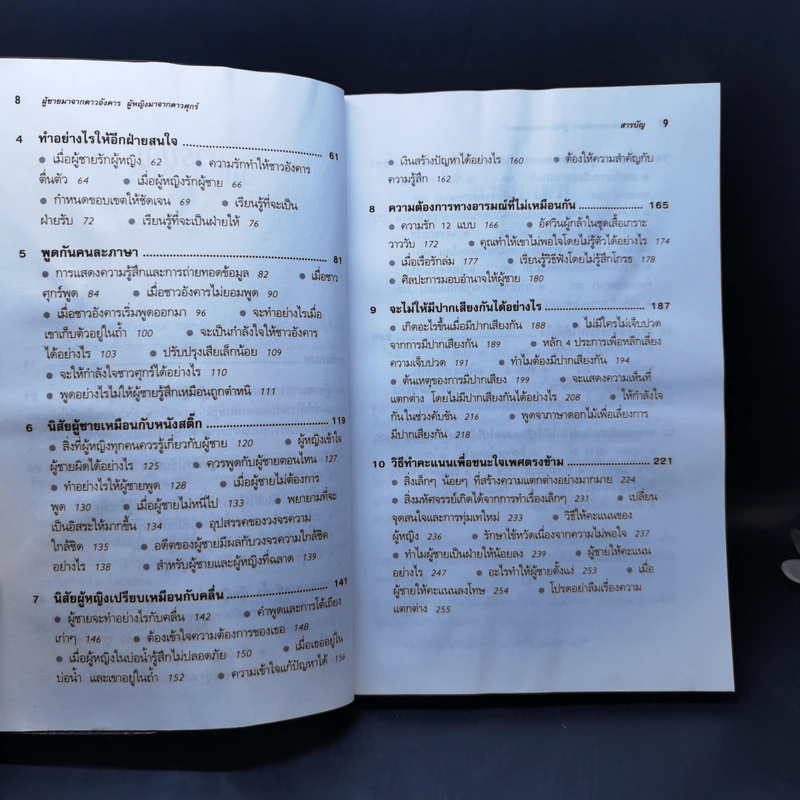 8 ผู้ชายมาจากดาวอังคาร ผู้หญิงมาจากดาวศุกร์
4 ทำอย่างไรให้อีกฝ่ายสนใจ ........ 61
● เมื่อผู้ชายรักผู้หญิง 62 ● ความรักทำให้ชาวอังคาร
ตื่นตัว 64 ● เมื่อผู้หญิงรักผู้ชาย 66
● กำหนดขอบเขตให้ชัดเจน 69 ● เรียนรู้ที่จะเป็น
ฝ่ายรับ 72 ● เรียนรู้ที่จะเป็นฝ่ายให้ 76
5 พูดกันคนละภาษา ........ 81
● การแสดงความรู้สึกและการถ่ายทอดข้อมูล 82 ● เมื่อชาว
ศุกร์พูด 84 ● เมื่อชาวอังคารไม่ยอมพูด 90
● เมื่อชาวอังคารเริ่มพูดออกมา 96 ● จะทำอย่างไรเมื่อ
เขาเก็บตัวอยู่ในถ้ำ 100 ● จะเป็นกำลังใจให้ชาวอังคาร
ได้อย่างไร 103 ● ปรับปรุงเสียเล็กน้อย 109
● จะให้กำลังใจชาวศุกร์ได้อย่างไร 110
● พูดอย่างไรไม่ให้ผู้ชายรู้สึกเหมือนถูกตำหนิ 111
6 นิสัยผู้ชายเหมือนกับหนังสติ๊ก ........ 119
● สิ่งที่ผู้หญิงทุกคนควรรู้เกี่ยวกับผู้ชาย 120 ● ผู้หญิงเข้าใจ
ผู้ชายผิดได้อย่างไร 125 ● ควรพูดกับผู้ชายตอนไหน 127
● ทำอย่างไรให้ผู้ชายพูด 128 ● เมื่อผู้ชายไม่ต้องการ
พูด 130 ● เมื่อผู้ชายไม่หนีไป 133 ● พยายามที่จะ
เป็นอิสระให้มากขึ้น 134 ● อุปสรรคของวงจรความ
ใกล้ชิด 135 ● อดีตของผู้ชายมีผลกับวงจรความใกล้ชิด
อย่างไร 138 ● สำหรับผู้ชายและผู้หญิงที่ฉลาด 139
7 นิสัยผู้หญิงเปรียบเหมือนกับคลื่น ........ 141
● ผู้ชายจะทำอย่างไรกับคลื่น 142 ● คำพูดและการโต้เถียง
เก่าๆ 146 ● ต้องเข้าใจความต้องการของเธอ 148
● เมื่อผู้หญิงในบ่อน้ำรู้สึกไม่ปลอดภัย 150 ● เมื่อเธออยู่ใน
บ่อน้ำ และเขาอยู่ในถ้ำ 152 ● ความเข้าใจแก้ปัญหาได้ 156
สารบัญ 9
● เงินสร้างปัญหาได้อย่างไร 160 ● ต้องให้ความสำคัญกับ
ความรู้สึก 162
8 ความต้องการทางอารมณ์ที่ไม่เหมือนกัน ........ 165
● ความรัก 12 แบบ 166 ● อัศวินผู้กล้าในชุดเสื้อเกราะ
วาววับ 172 ● คุณทำให้เขาไม่พอใจโดยไม่รู้ตัวได้อย่างไร 174
● เมื่อเรือรักล่ม 177 ● เรียนรู้วิธีฟังโดยไม่รู้สึกโกรธ 178
● ศิลปะการมอบอำนาจให้ผู้ชาย 180
9 จะไม่ให้มีปากเสียงกันได้อย่างไร ........ 187
● เกิดอะไรขึ้นเมื่อมีปากเสียงกัน 188 ● ไม่มีใครไม่เจ็บปวด
จากการมีปากเสียงกัน 189 ● หลัก 4 ประการเพื่อหลีกเลี่ยง
ความเจ็บปวด 191 ● ทำไมต้องมีปากเสียงกัน 194
● ต้นเหตุของการมีปากเสียง 199 ● จะแสดงความเห็นที่
แตกต่าง โดยไม่มีปากเสียงกันได้อย่างไร 208 ● ให้กำลังใจ
กันในช่วงคับขัน 216 ● พูดจาภาษาดอกไม้เพื่อเลี่ยงการ
มีปากเสียงกัน 218
10 วิธีทำคะแนนเพื่อชนะใจเพศตรงข้าม ........ 221
● สิ่งเล็กๆ น้อยๆ ที่สร้างความแตกต่างอย่างมากมาย 224
● สิ่งมหัศจรรย์เกิดได้จากการทำเรื่องเล็กๆ 231 ● เปลี่ยน
จุดสนใจและการทุ่มเทใหม่ 233 ● วิธีให้คะแนนของ
ผู้หญิง 236 ● รักษาไข้หวัดเนื่องจากความไม่พอใจ 237
● ทำไมผู้ชายเป็นฝ่ายให้น้อยลง 239 ● ผู้ชายให้คะแนน
อย่างไร 247 ● อะไรทำให้ผู้ชายตั้งแง่ 253 ● เมื่อ
ผู้ชายให้คะแนนลงโทษ 254 ● โปรดอย่าลืมเรื่องความ
แตกต่าง 255